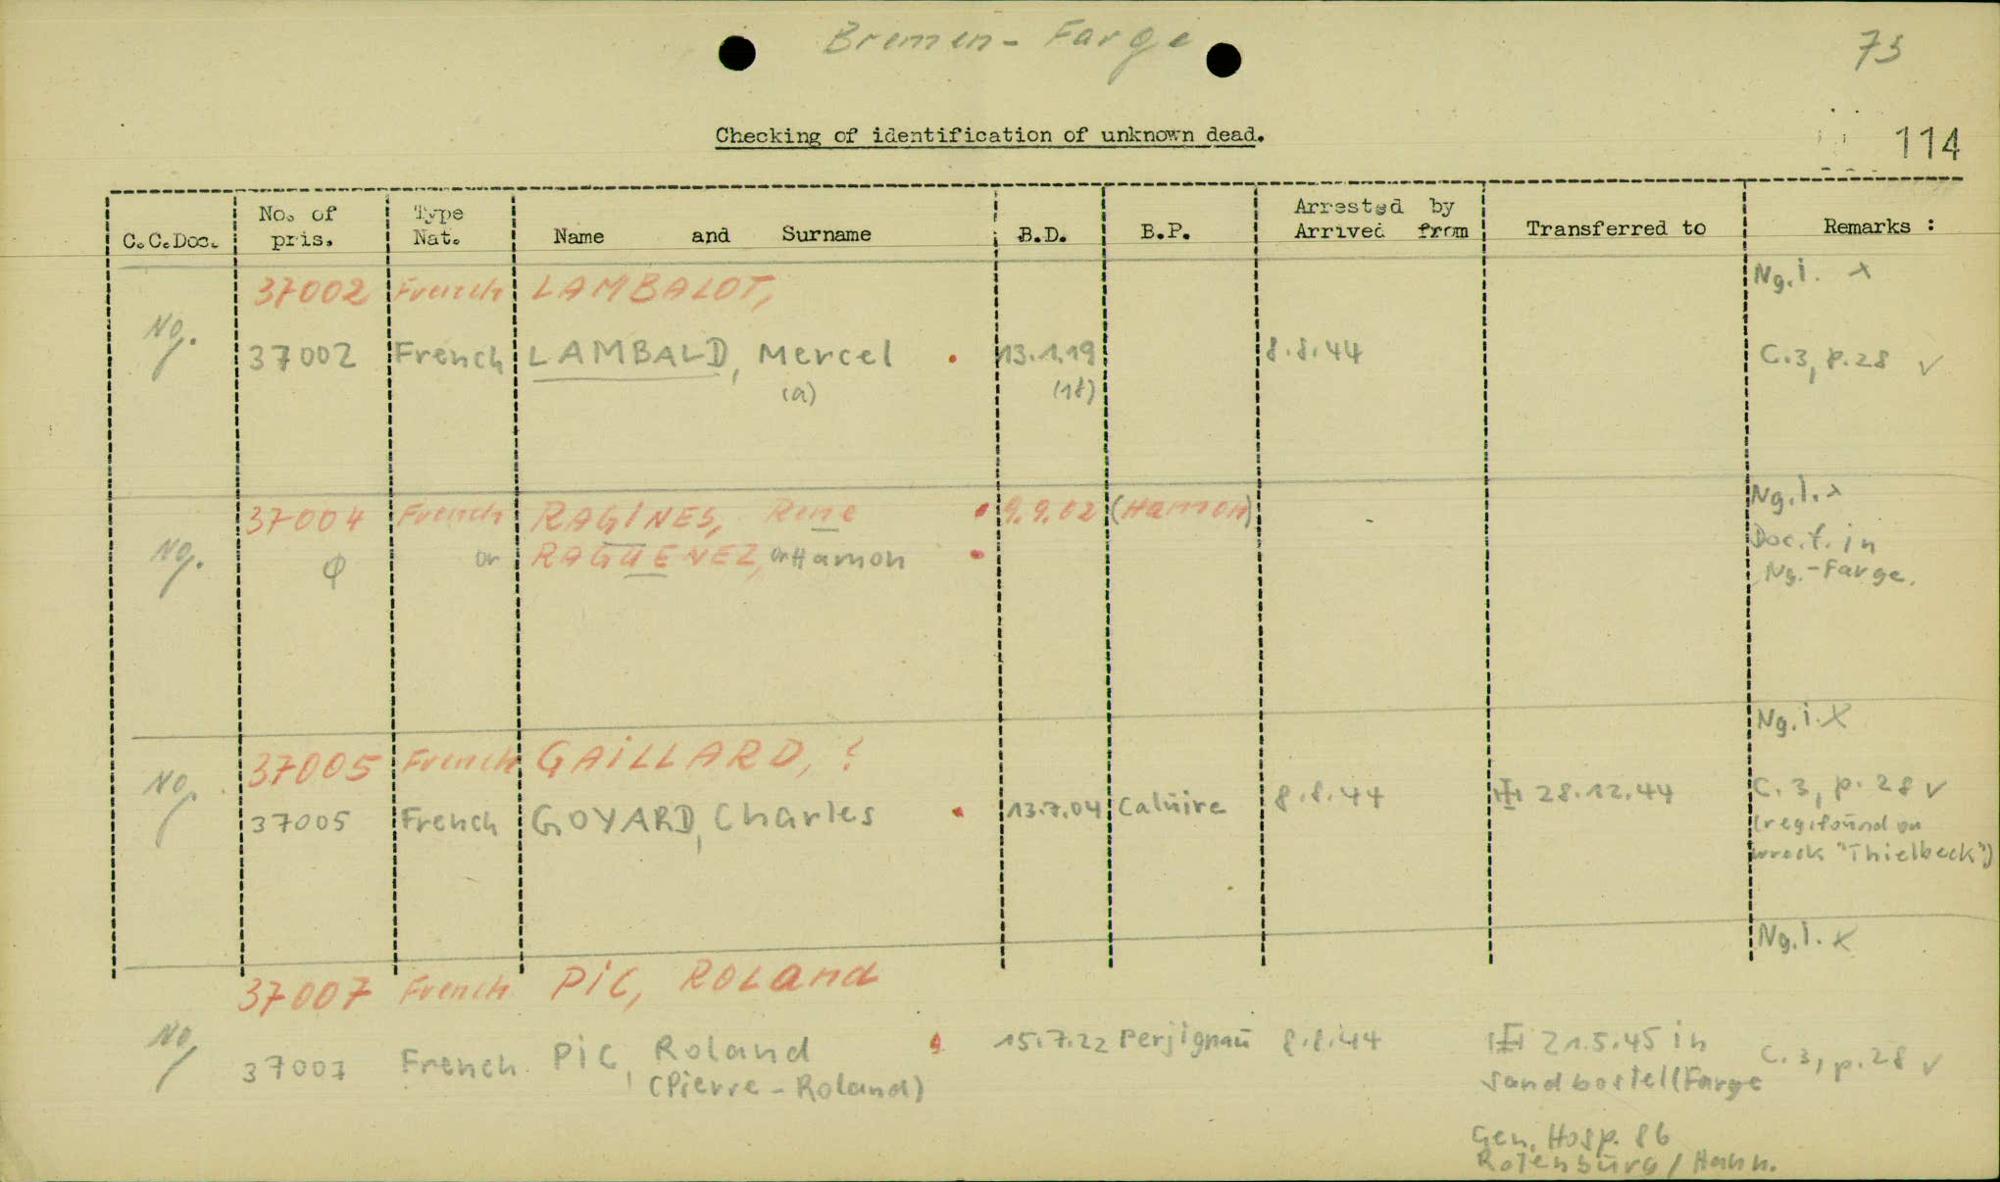 Bremen-Farge
73
Checking of identification of unknown dead.
114
C.C.Doc. No. of pris. Type Nat. Name and Surname B.D. B.P. Arrested by Arrived from Transferred to Remarks :
37002 French LAMBALOT, Ng.i. x
Ng. 37002 French LAMBALD, Mercel 13.1.19 8.8.44 C.3, p.28 ✓
(a) (18)
37004 French RAGINES, Rene 9.9.02 (Hamon) Ng.i. x
Ng. φ or RAGUENEZ, or Hamon Doc.f. in
Ng.-Farge.
Ng.i. x
37005 French GAILLARD, ?
Ng. 37005 French GOYARD, Charles 13.7.04 Caluire 8.8.44 28.12.44 C.3, p.28 ✓
(reg. found on
wreck "Thielbeck")
Ng.i. x
37007 French PIC, ROLand
Ng 37007 French PIC, Roland 15.7.22 Perjignaū 8.8.44 21.5.45 in C.3, p.28 ✓
(Pierre-Roland) Sandbostel (Farge
Gen. Hosp. 86
Rotenbūrg / Hann.